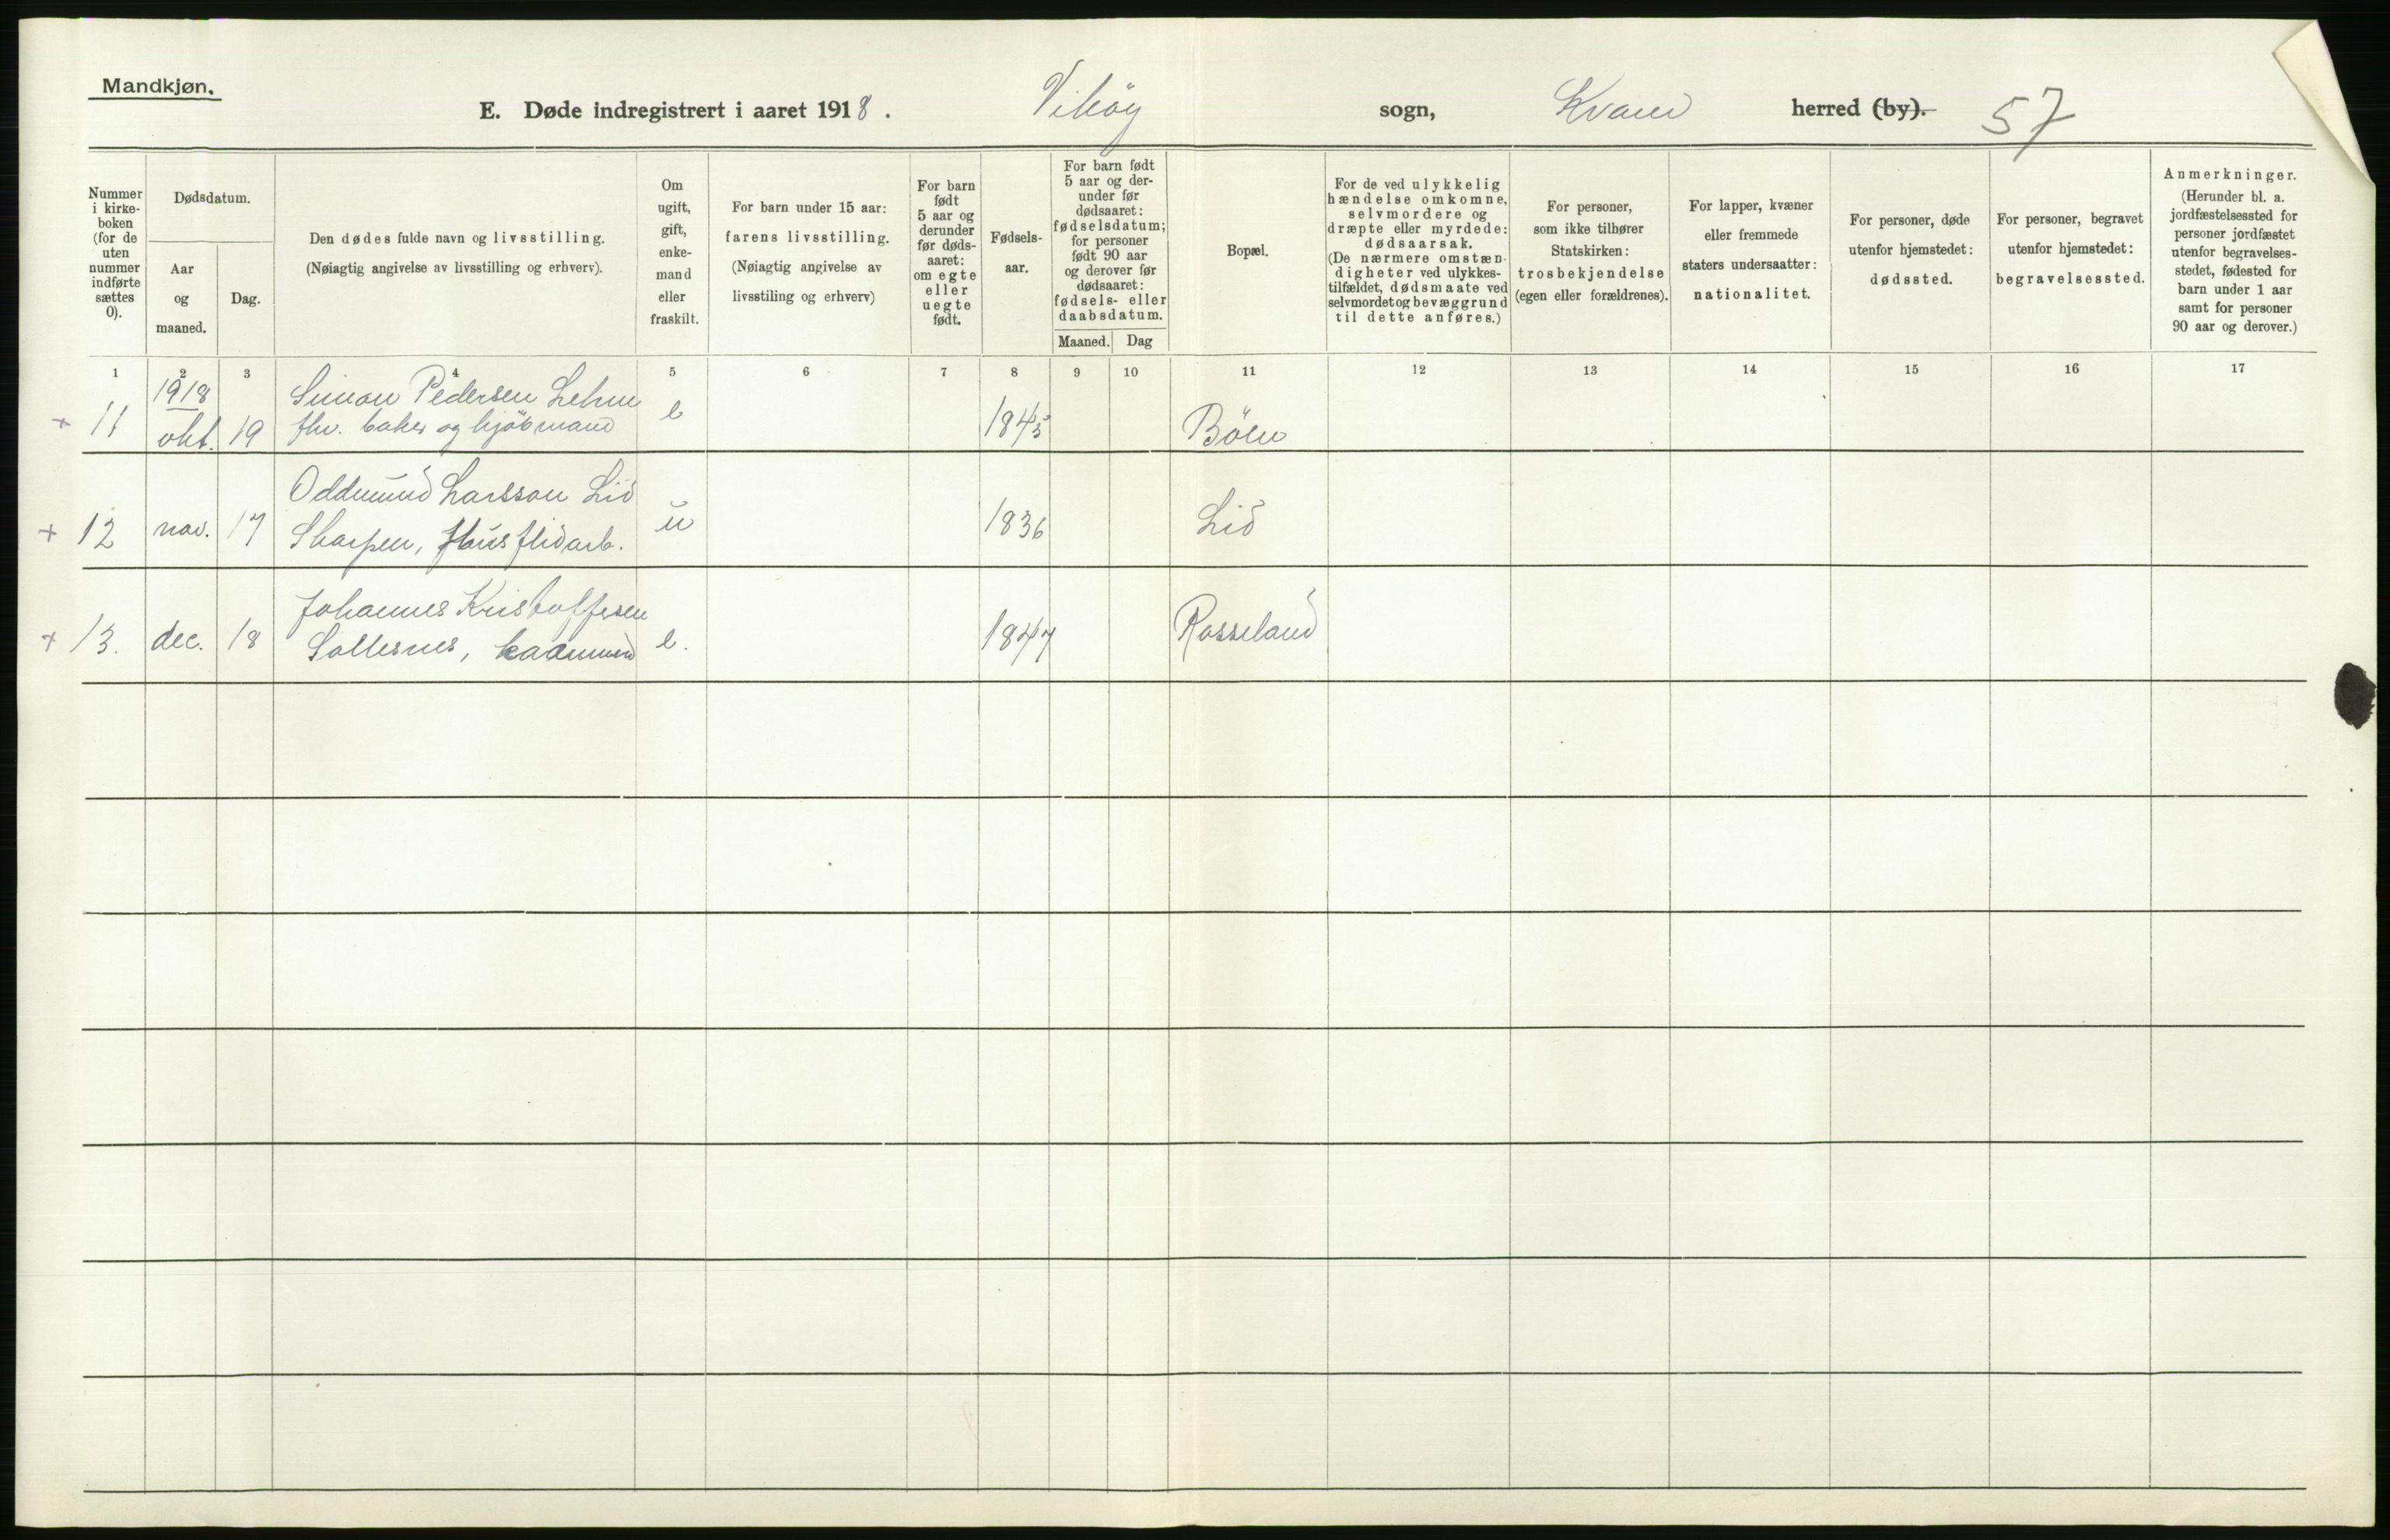 Mandkjøn.
E. Døde indregistrert i aaret 1918. Viköy sogn, Kvam herred (by). 57
Nummer
i kirke-
boken
(for de
uten
nummer
indførte
sættes
0).
Dødsdatum.
Aar
og
maaned.
Dag.
Den dødes fulde navn og livsstilling.
(Nøiagtig angivelse av livsstilling og erhverv).
Om
ugift,
gift,
enke-
mand
eller
fraskilt.
For barn under 15 aar:
farens livsstilling.
(Nøiagtig angivelse av
livsstiling og erhverv)
For barn
født
5 aar og
derunder
før døds-
aaret:
om egte
eller
uegte
født.
Fødsels-
aar.
For barn født
5 aar og der-
under før
dødsaaret:
fødselsdatum;
for personer
født 90 aar
og derover før
dødsaaret:
fødsels- eller
daabsdatum.
Maaned. Dag
Bopæl.
For de ved ulykkelig
hændelse omkomne,
selvmordere og
dræpte eller myrdede:
dødsaarsak.
(De nærmere omstæn-
digheter ved ulykkes-
tilfældet, dødsmaate ved
selvmordet og bevæggrund
til dette anføres.)
For personer,
som ikke tilhører
Statskirken:
trosbekjendelse
(egen eller forældrenes).
For lapper, kvæner
eller fremmede
staters undersaatter:
nationalitet.
For personer, døde
utenfor hjemstedet:
dødssted.
For personer, begravet
utenfor hjemstedet:
begravelsessted.
Anmerkninger.
(Herunder bl. a.
jordfæstelsessted for
personer jordfæstet
utenfor begravelses-
stedet, fødested for
barn under 1 aar
samt for personer
90 aar og derover.)
1 2 3 4 5 6 7 8 9 10 11 12 13 14 15 16 17
1918 Simon Pedersen
+ 11 okt. 19 fhv. baker og kjöbmand e 1845 Böen
Oddmund Larsson Lid
+ 12 nov. 17 Skarpen, Husflidarb. u 1836 Lid
Johannes Kristoffersen
+ 13. dec. 18 Sollesnes, kaarmand e. 1847 Rosseland